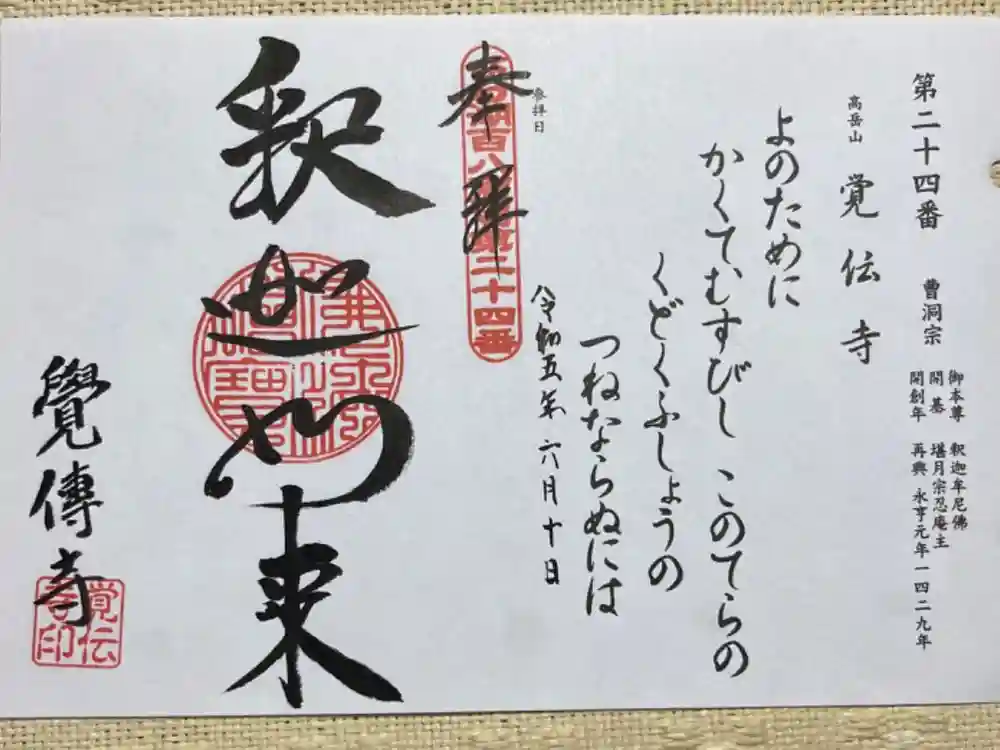 第二十四番 曹洞宗
御本尊 釈迦牟尼佛
開基 堪月宗忍庵主
開創年 再興 永亨元年一四二九年
高岳山 覚伝寺
よのために
かくてむすびし このてらの
くどくふしょうの
つねならぬには
参拝日
令和五年 六月十日
奉拝
百八
第二十四番
釈迦如来
覺傳寺
覚伝寺印